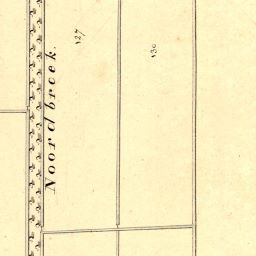 Noordbroek.
127
130